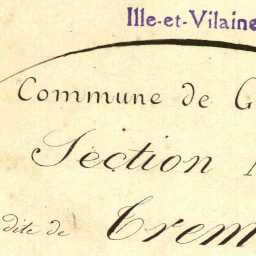 Ille-et-Vilaine
Commune de G
Section
dite de Crem